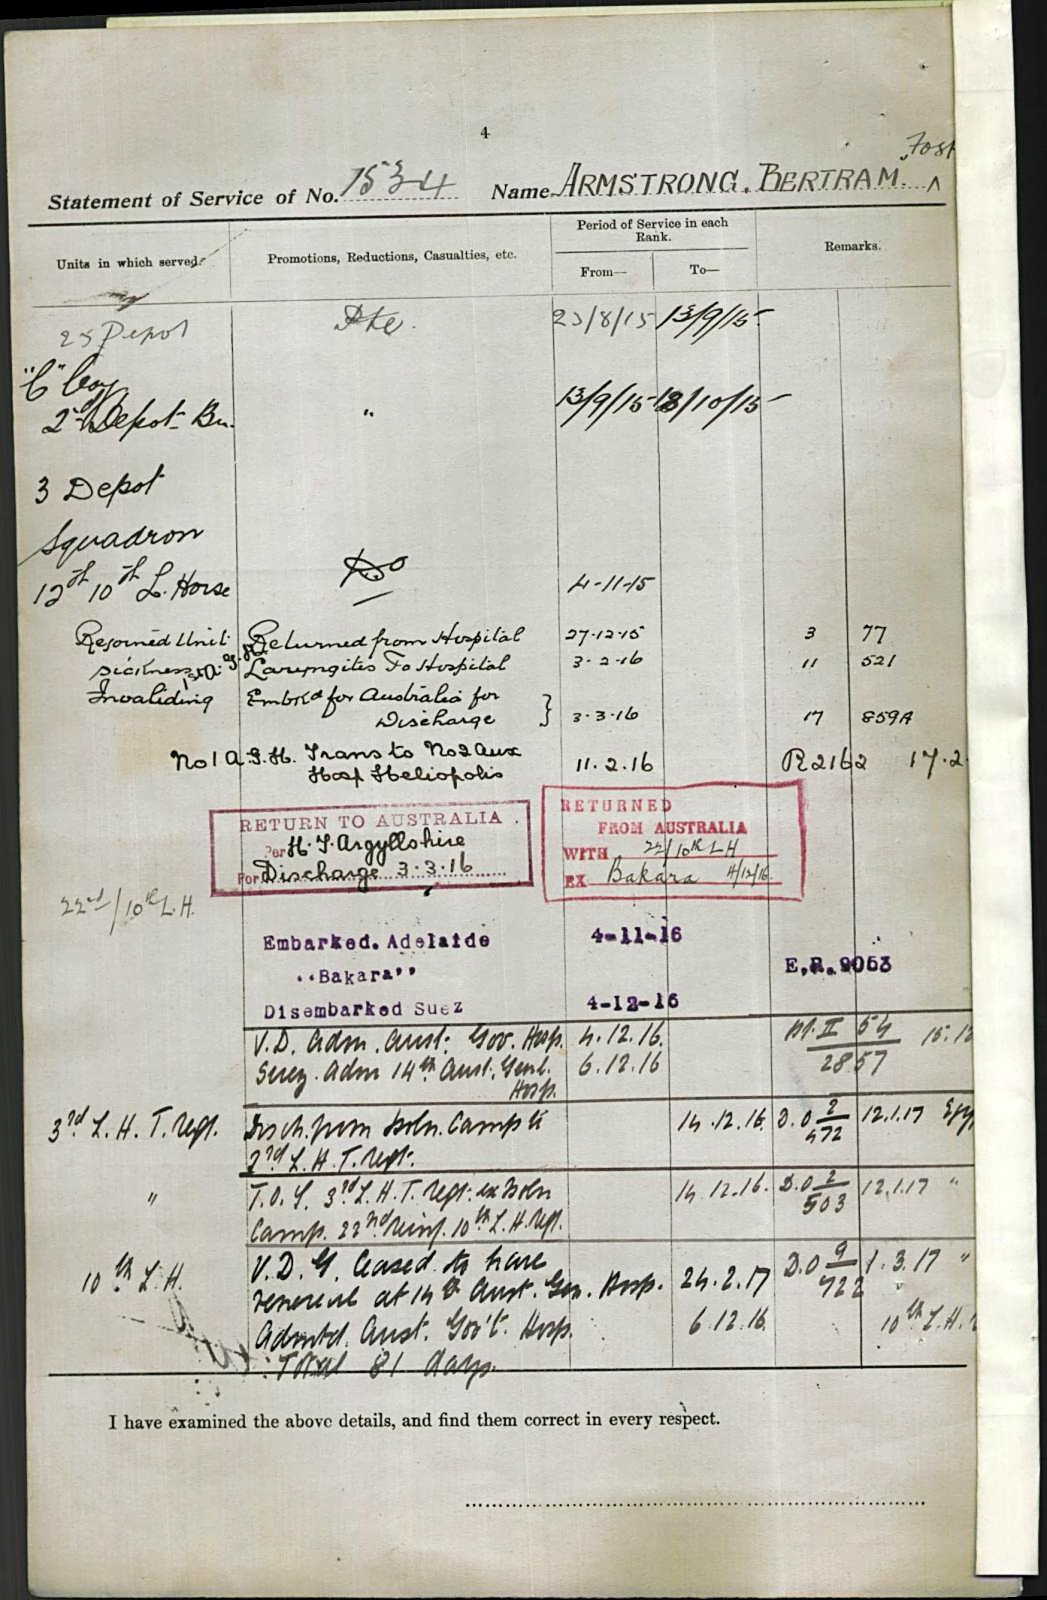 4
Fost
Statement of Service of No. 1534 Name ARMSTRONG. BERTRAM. ^
Units in which served. Promotions, Reductions, Casualties, etc. Period of Service in each Rank. Remarks.
From— To—
23 Depot Pte. 23/8/15 13/9/15
"C" Coy
2nd Depot Bn. " 13/9/15 18/10/15
3 Depot
Squadron
12th 10th L. Horse Do 4-11-15
Rejoined Unit Returned from Hospital 27-12-15 3 77
Sickness Laryngitis To Hospital 3-2-16 11 521
Invaliding Embkd for Australia for
Discharge } 3-3-16 17 859A
No 1 A.G.H. Trans to No 2 Aux
Hosp Heliopolis 11.2.16 R2162 17.2
RETURN TO AUSTRALIA
Per H.T. Argyllshire
For Discharge 3.3.16
RETURNED
FROM AUSTRALIA
WITH 22/10th LH
EX Bakara 4/12/16
22nd/10th L.H.
Embarked. Adelaide 4-11-16
"Bakara" E.R. 9053
Disembarked Suez 4-12-16
V.D. Adm. Aust. Gov. Hosp. 4.12.16. pt. II 54 15.12
Suez. Adm 14th Aust. Genl. 6.12.16 2857
Hosp.
3rd L.H.T. Regt. Disch. from Isoln. Camp to 14.12.16. D.O 2/472 12.1.17 Egy
3rd L.H.T. Regt.
" T.O.S. 3rd L.H.T. Regt. ex Isoln 14.12.16. D.O 2/503 12.1.17 "
Camp. 22nd reinf. 10th L.H. Regt.
10th L.H. V.D.G. Ceased to have D.O 9/722 1.3.17 "
venereal at 14th Aust. Gen. Hosp. 24.2.17
Admtd. Aust. Gov't. Hosp. 6.12.16. 10th L.H.
Total 81 days.
I have examined the above details, and find them correct in every respect.